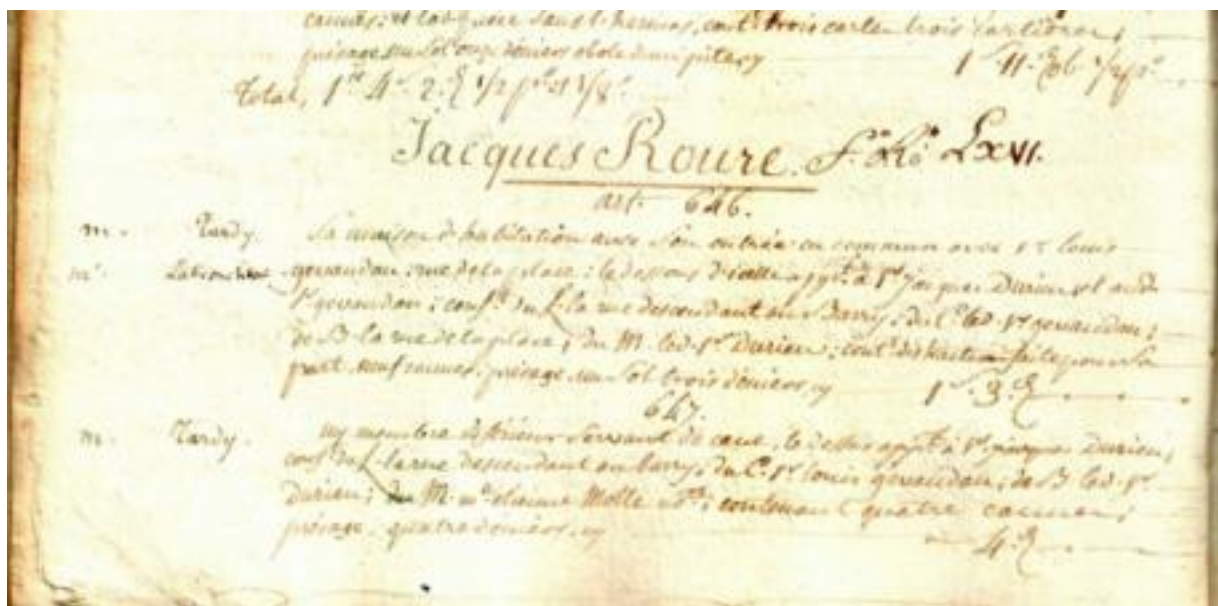 cannes; et las quére sans t. hermas, cont. trois cartes trois cartières;
présage un sol onze deniers obole demi pite, cy 1 s 11 ₰ ob. 1/2 p.e
Total, 1 4 s 2 ₰ 1/2 p.e et 1/8.e
Jacques Roure. f.o R.o LXVI.
art. 646.
m. Tardy. Sa maison d'habitation avec son entrée en commun avec s.r louis
m.r gevaudan, rue de la place; le dessous d'icelle app.t à s.r Jacques Durieu et aud.
s.r gevaudan; conf.e du L. la rue descendant au Barry, du C. led. s.r gevaudan;
de B. la rue de la place; du M. led. s.r Durieu; cont. distraction faite pour sa
part neuf cannes, présage un sol trois deniers, cy 1 s 3 ₰
647.
m. Tardy. un membre servant de cave, le dessus app.t à s.r jacques Durieu;
conf.e du L. la rue descendant au barry, du C. s.r louis gevaudan; de B. led. s.r
Durieu; du M. m.e etienne Molle; contenant quatre cannes;
présage, quatre deniers, cy 4 ₰